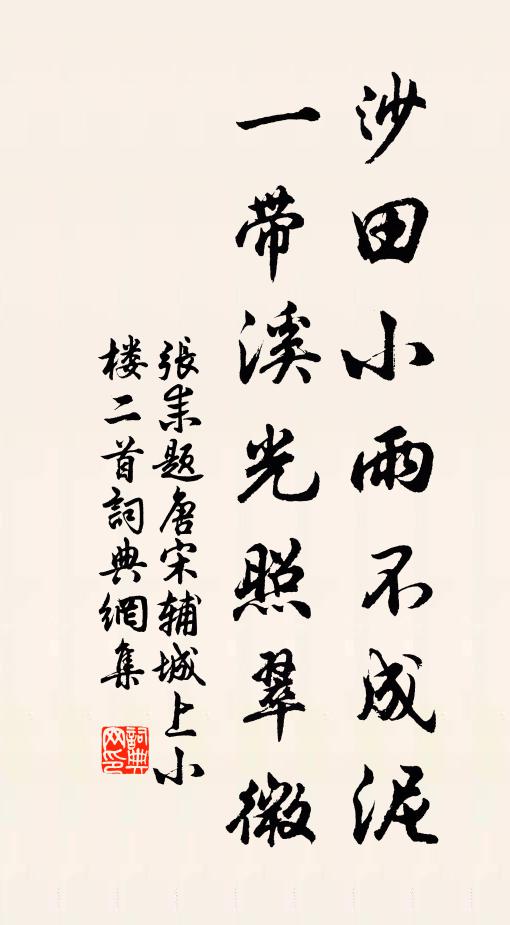 沙田小雨不成泥
一带溪光照翠微
張耒题唐宋辅城上小
楼二首詞典網集
詞典網印